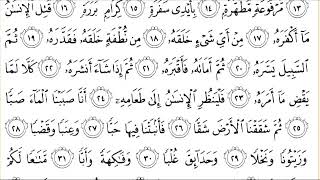 ١٣ مَّرْفُوعَةٍ مُّطَهَّرَةٍ ١٤ بِأَيْدِى سَفَرَةٍ ١٥ كِرَامٍ بَرَرَةٍ ١٦ قُتِلَ ٱلْإِنسَٰنُ
مَآ أَكْفَرَهُۥ ١٧ مِنْ أَىِّ شَىْءٍ خَلَقَهُۥ ١٨ مِن نُّطْفَةٍ خَلَقَهُۥ فَقَدَّرَهُۥ ١٩ ثُمَّ
ٱلسَّبِيلَ يَسَّرَهُۥ ٢٠ ثُمَّ أَمَاتَهُۥ فَأَقْبَرَهُۥ ٢١ ثُمَّ إِذَا شَآءَ أَنشَرَهُۥ ٢٢ كَلَّا لَمَّا
يَقْضِ مَآ أَمَرَهُۥ ٢٣ فَلْيَنظُرِ ٱلْإِنسَٰنُ إِلَىٰ طَعَامِهِۦٓ ٢٤ أَنَّا صَبَبْنَا ٱلْمَآءَ صَبًّا
٢٥ ثُمَّ شَقَقْنَا ٱلْأَرْضَ شَقًّا ٢٦ فَأَنۢبَتْنَا فِيهَا حَبًّا ٢٧ وَعِنَبًا وَقَضْبًا ٢٨
وَزَيْتُونًا وَنَخْلًا ٢٩ وَحَدَآئِقَ غُلْبًا ٣٠ وَفَٰكِهَةً وَأَبًّا ٣١ مَّتَٰعًا لَّكُمْ